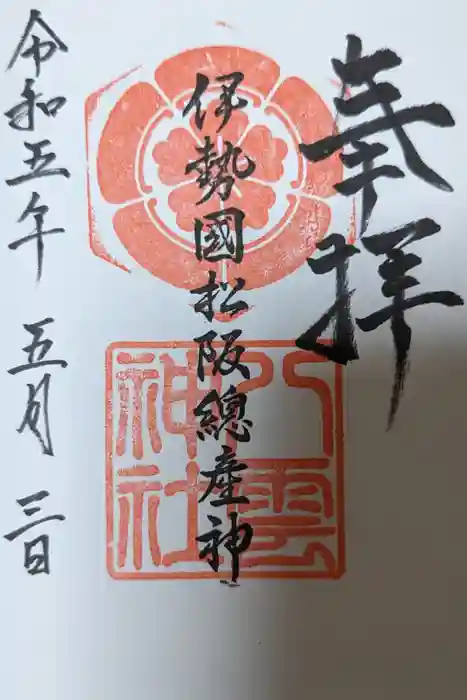 奉拝
伊勢國松阪總産神
八雲
神社
令和五年 五月 三日